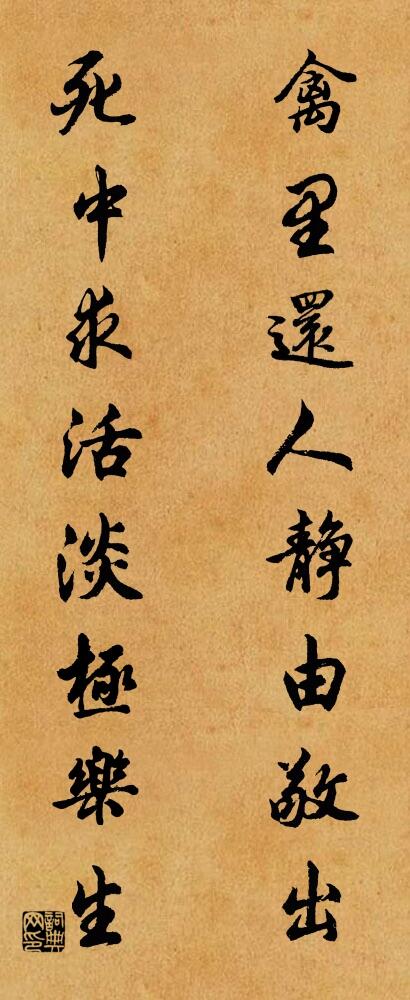 禽里還人靜由敬出
死中求活淡極樂生
詞典網印